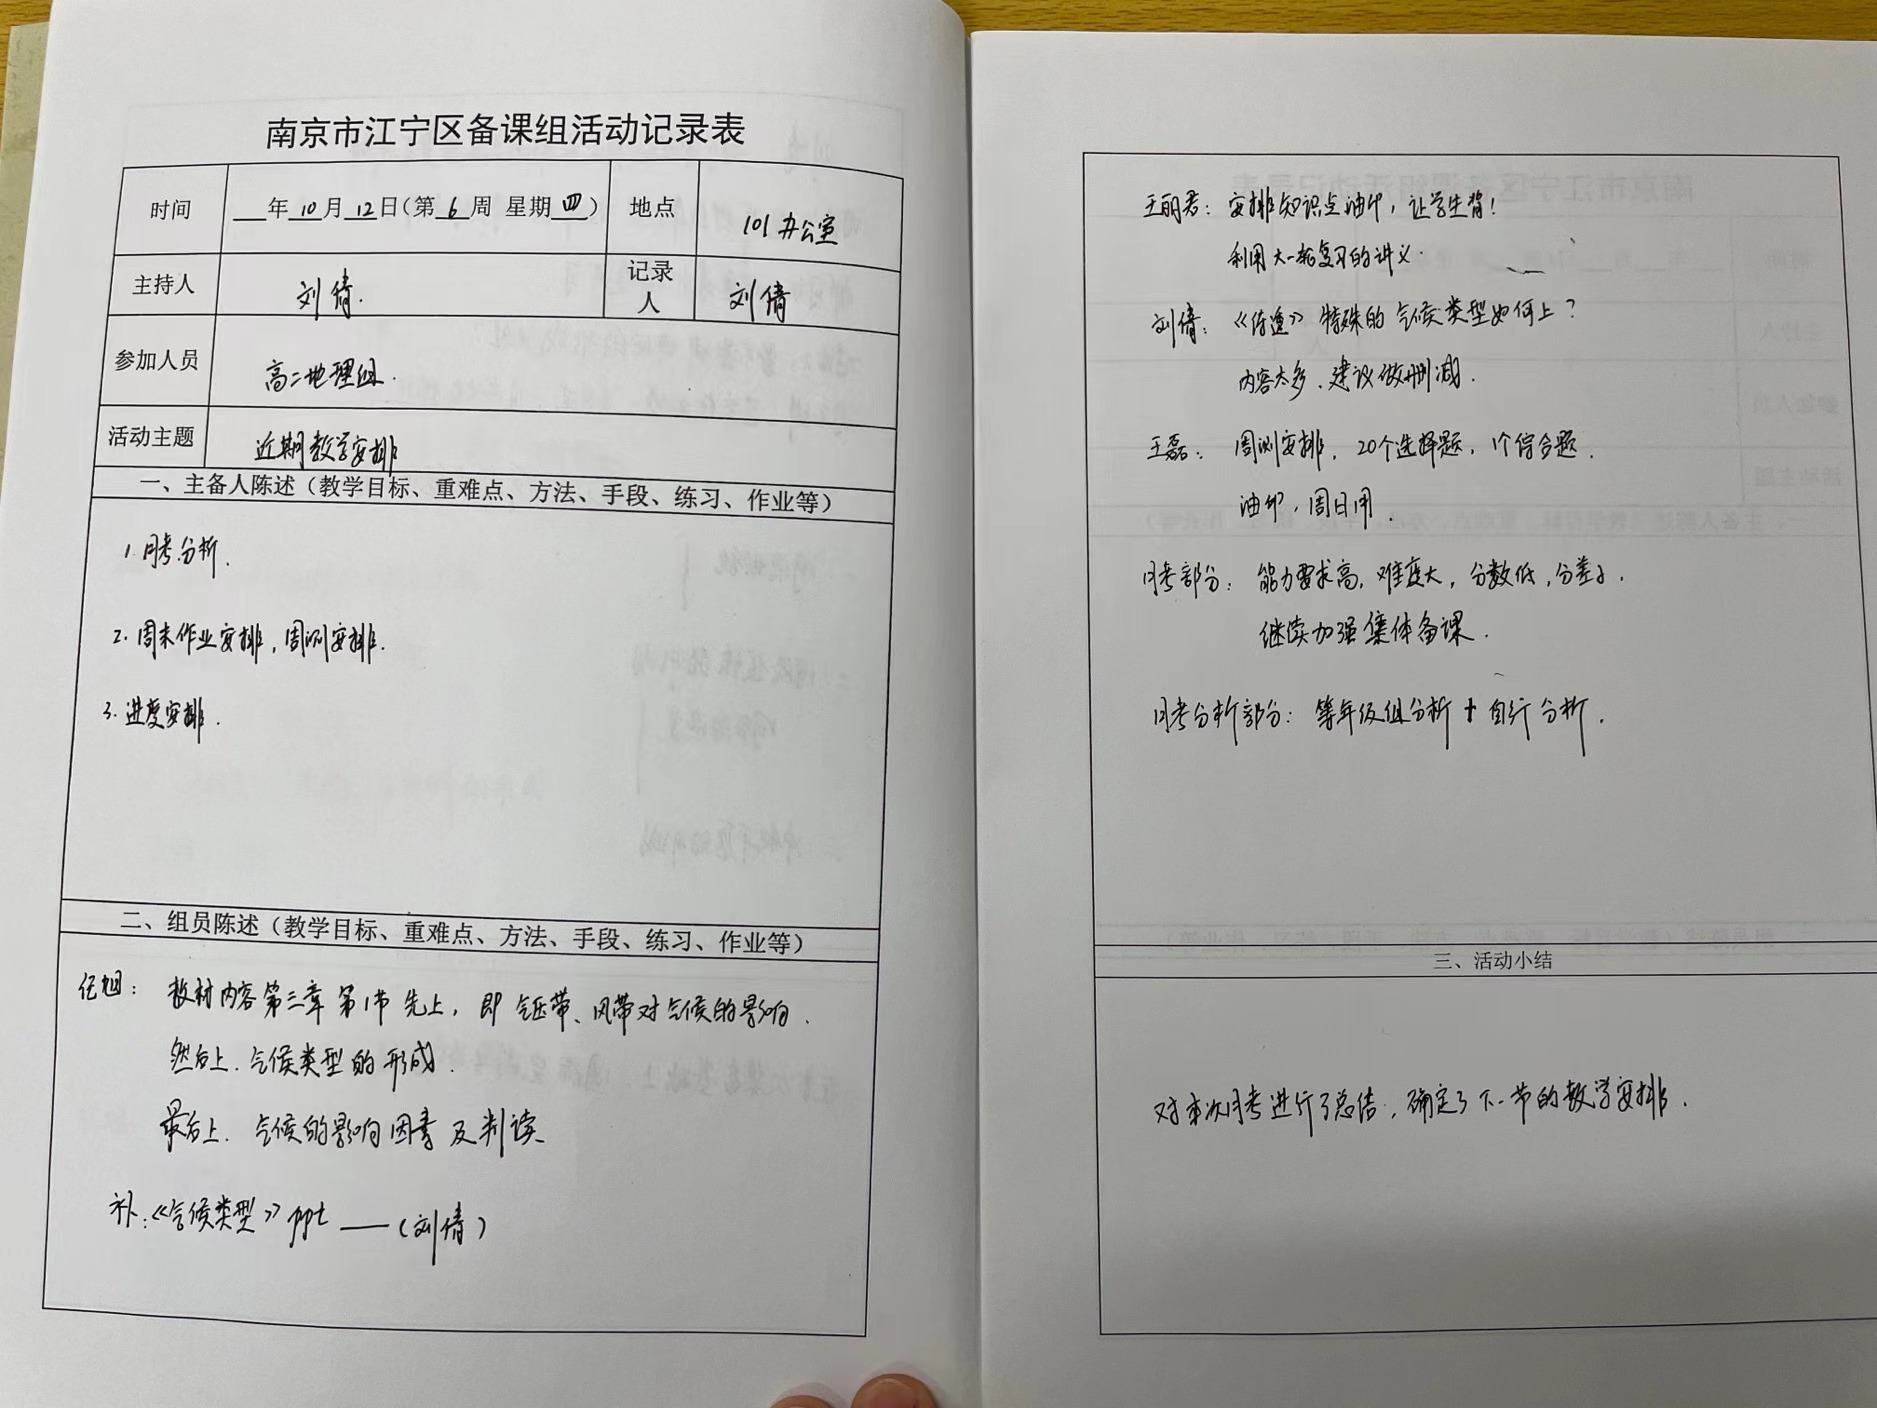 南京市江宁区备课组活动记录表
时间 ___年10月12日(第6周 星期四) 地点 101办公室
主持人 刘倩. 记录人 刘倩
参加人员 高二地理组.
活动主题 近期教学安排
一、主备人陈述（教学目标、重难点、方法、手段、练习、作业等）
1.月考分析.
2.周末作业安排，周测安排.
3.进度安排.
二、组员陈述（教学目标、重难点、方法、手段、练习、作业等）
旭：教材内容第三章第1节先上，即气压带、风带对气候的影响.
然后上.气候类型的形成.
最后上.气候的影响因素及判读.
补:《气候类型》ppt ——(刘倩)
王丽君：安排知识点油印，让学生背!
利用大一轮复习的讲义.
刘倩：《 》特殊的气候类型如何上?
内容太多、建议做删减.
王磊：周测安排，20个选择题，1个综合题.
油印，周日用.
月考部分：能力要求高，难度大，分数低，分差小.
继续加强集体备课.
月考分析部分：等年级组分析+自行分析.
三、活动小结
对本次月考进行了总结，确定了下一节的教学安排.